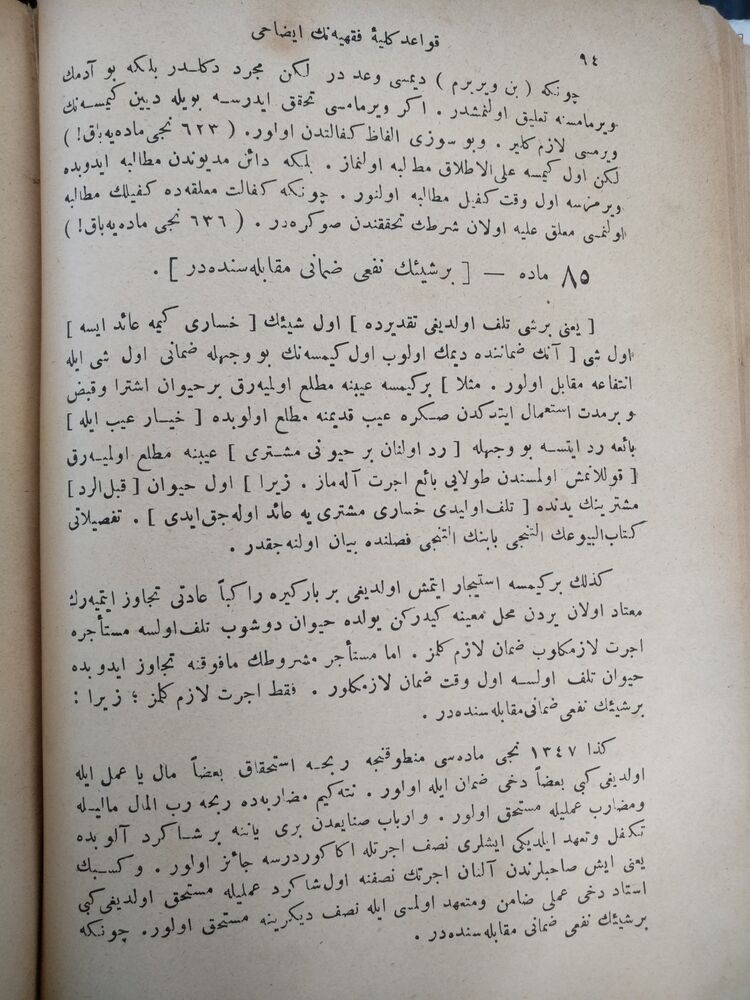 ٩٤
قواعد كلیهٔ فقهیه نك ایضاحی
چونكه ( بن ویریرم ) دیمسی وعد در لكن مجرد دكلدر بلكه بو آدمك
ویرمامسنه تعلیق اولنمشدر . اكر ویرمامسی تحقق ایدرسه بویله دیین كیمسه نك
ویرمسی لازم كلیر . وبو سوزی الفاظ كفالتدن اولور . ( ٦٢٣ نجی ماده یه باق ! )
لكن اول كیمسه علی الاطلاق مطالبه اولنماز . بلكه دائن مدیوندن مطالبه ایدوبده
ویرمزسه اول وقت كفیل مطالبه اولنور . چونكه كفالت معلقه ده كفیلك مطالبه
اولنمسی معلق علیه اولان شرطك تحققندن صوكره در . ( ٦٣٦ نجی ماده یه باق ! )
٨٥ ماده — [ برشیئك نفعی ضمانی مقابله سنده در ] .
[ یعنی برشی تلف اولدیغی تقدیرده ] اول شیئك [ خساری كیمه عائد ایسه ]
اول شی [ آنك ضماننده دیمك اولوب اول كیمسه نك بو وجهله ضمانی اول شی ایله
انتفاعه مقابل اولور . مثلا ] بركیمسه عیبنه مطلع اولمیه رق برحیوان اشترا وقبض
و برمدت استعمال ایتدكدن صكره عیب قدیمنه مطلع اولوبده [ خیار عیب ایله ]
بائعه رد ایتسه بو وجهله [ رد اولنان بر حیوانی مشتری ] عیبنه مطلع اولمیه رق
[ قوللانمش اولمسندن طولایی بائع اجرت آله ماز . زیرا ] اول حیوان [ قبل الرد ]
مشترینك یدنده [ تلف اولیدی خساری مشتری یه عائد اوله جق ایدی ] . تفصیلاتی
كتاب البیوعك التنجی بابنك التنجی فصلنده بیان اولنه جقدر .
كذلك بركیمسه استیجار ایتمش اولدیغی بر باركیره راكباً عادتی تجاوز ایتمیه رك
معتاد اولان یردن محل معینه كیدركن یولده حیوان دوشوب تلف اولسه مستأجره
اجرت لازمكلوب ضمان لازم كلمز . اما مستأجر مشروطك مافوقنه تجاوز ایدوبده
حیوان تلف اولسه اول وقت ضمان لازمكلور . فقط اجرت لازم كلمز ؛ زیرا :
برشیئك نفعی ضمانی مقابله سنده در .
كذا ١٣٤٧ نجی ماده سی منطوقنجه ربحه استحقاق بعضاً مال یا عمل ایله
اولدیغی كبی بعضاً دخی ضمان ایله اولور . نته كیم مضاربه ده ربحه رب المال مالیله
ومضارب عملیله مستحق اولور . وارباب صنایعدن بری یاننه بر شاكرد آلوبده
تكفل وتعهد ایلدیكی ایشلری نصف اجرتله اكا كوردرسه جائز اولور . وكسبك
یعنی ایش صاحبلرندن آلنان اجرتك نصفنه اول شاكرد عملیله مستحق اولدیغی كبی
استاد دخی عملی ضامن ومتعهد اولمسی ایله نصف دیكرینه مستحق اولور. چونكه
برشیئك نفعی ضمانی مقابله سنده در .